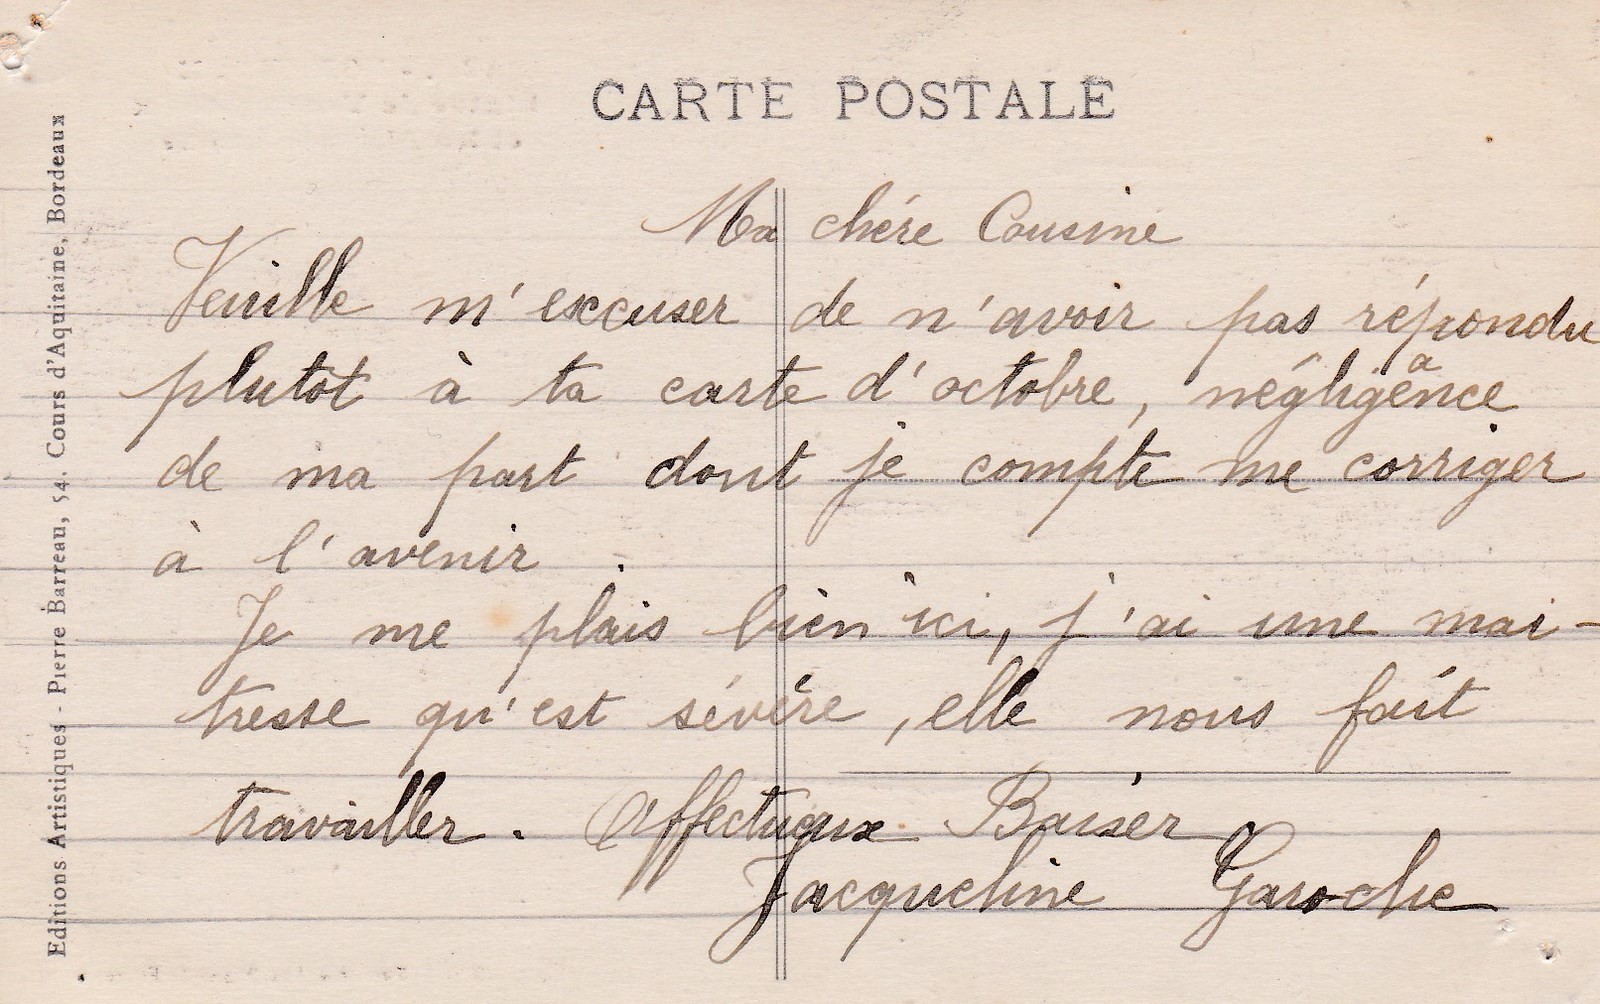 CARTE POSTALE
Ma chére Cousine
Veuille m'excuser de n'avoir pas répondu
plutôt à ta carte d'octobre, négligence
a
de ma part dont je compte me corriger
à l'avenir.
Je me plais bien ici, j'ai une mai-
tresse qu'est sévère, elle nous fait
travailler. Affectueux Baiser
Jacqueline Garoche
Editions Artistiques - Pierre Barreau, 54. Cours d'Aquitaine, Bordeaux